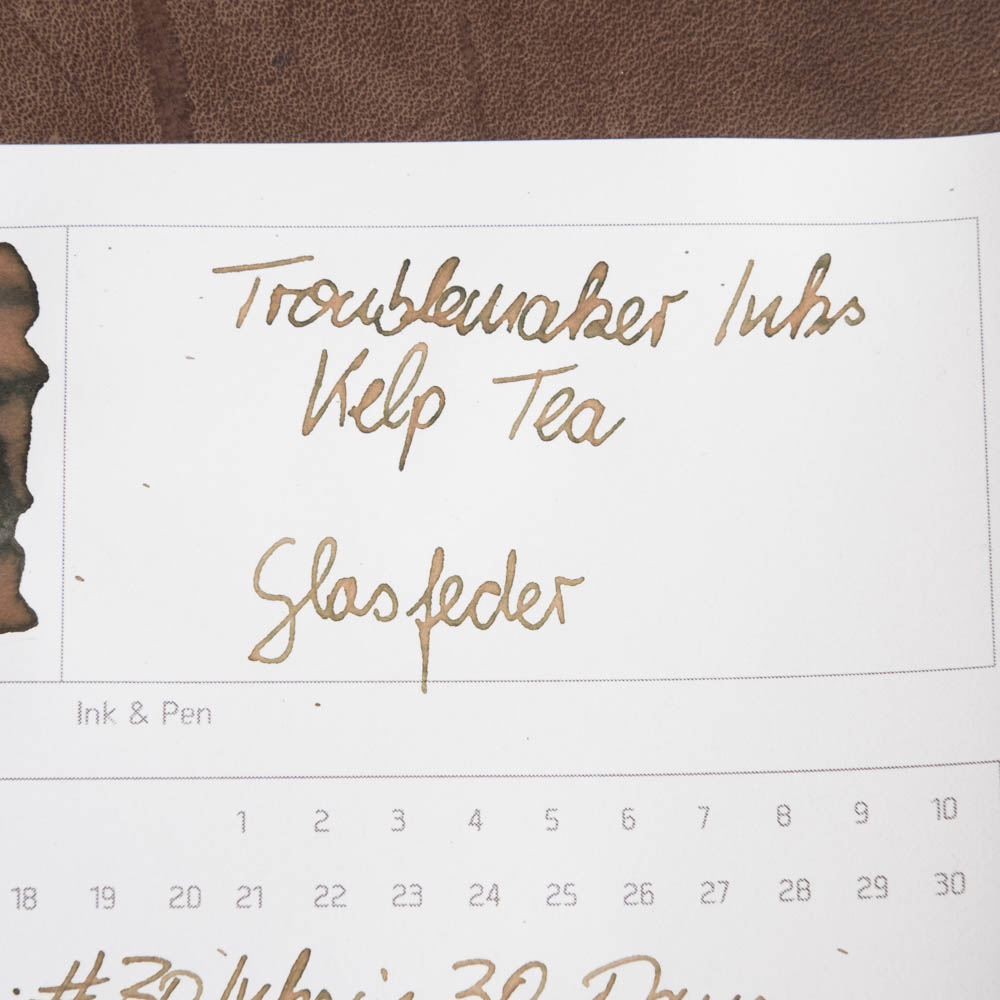 Troublemaker Inks
Kelp Tea
Glasfeder
Ink & Pen
1 2 3 4 5 6 7 8 9 10
18 19 20 21 22 23 24 25 26 27 28 29 30
#30Inksin30Days